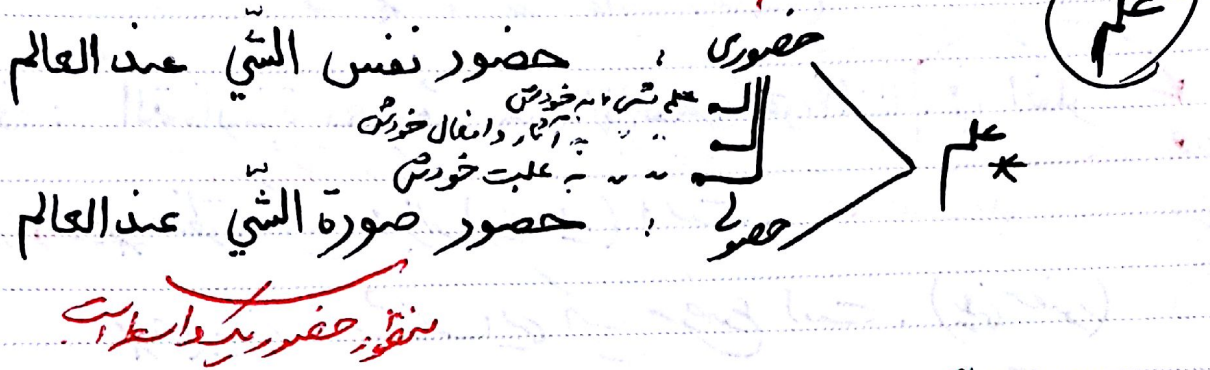 علم
* علم
حضوری : حضور نفس الشّي عند العالم
علم شی به خودش
〃 〃 به آثار و افعال خودش
〃 〃 به علت خودش
حصولی : حضور صورة الشّي عند العالم
منظور حضور یک واسط است